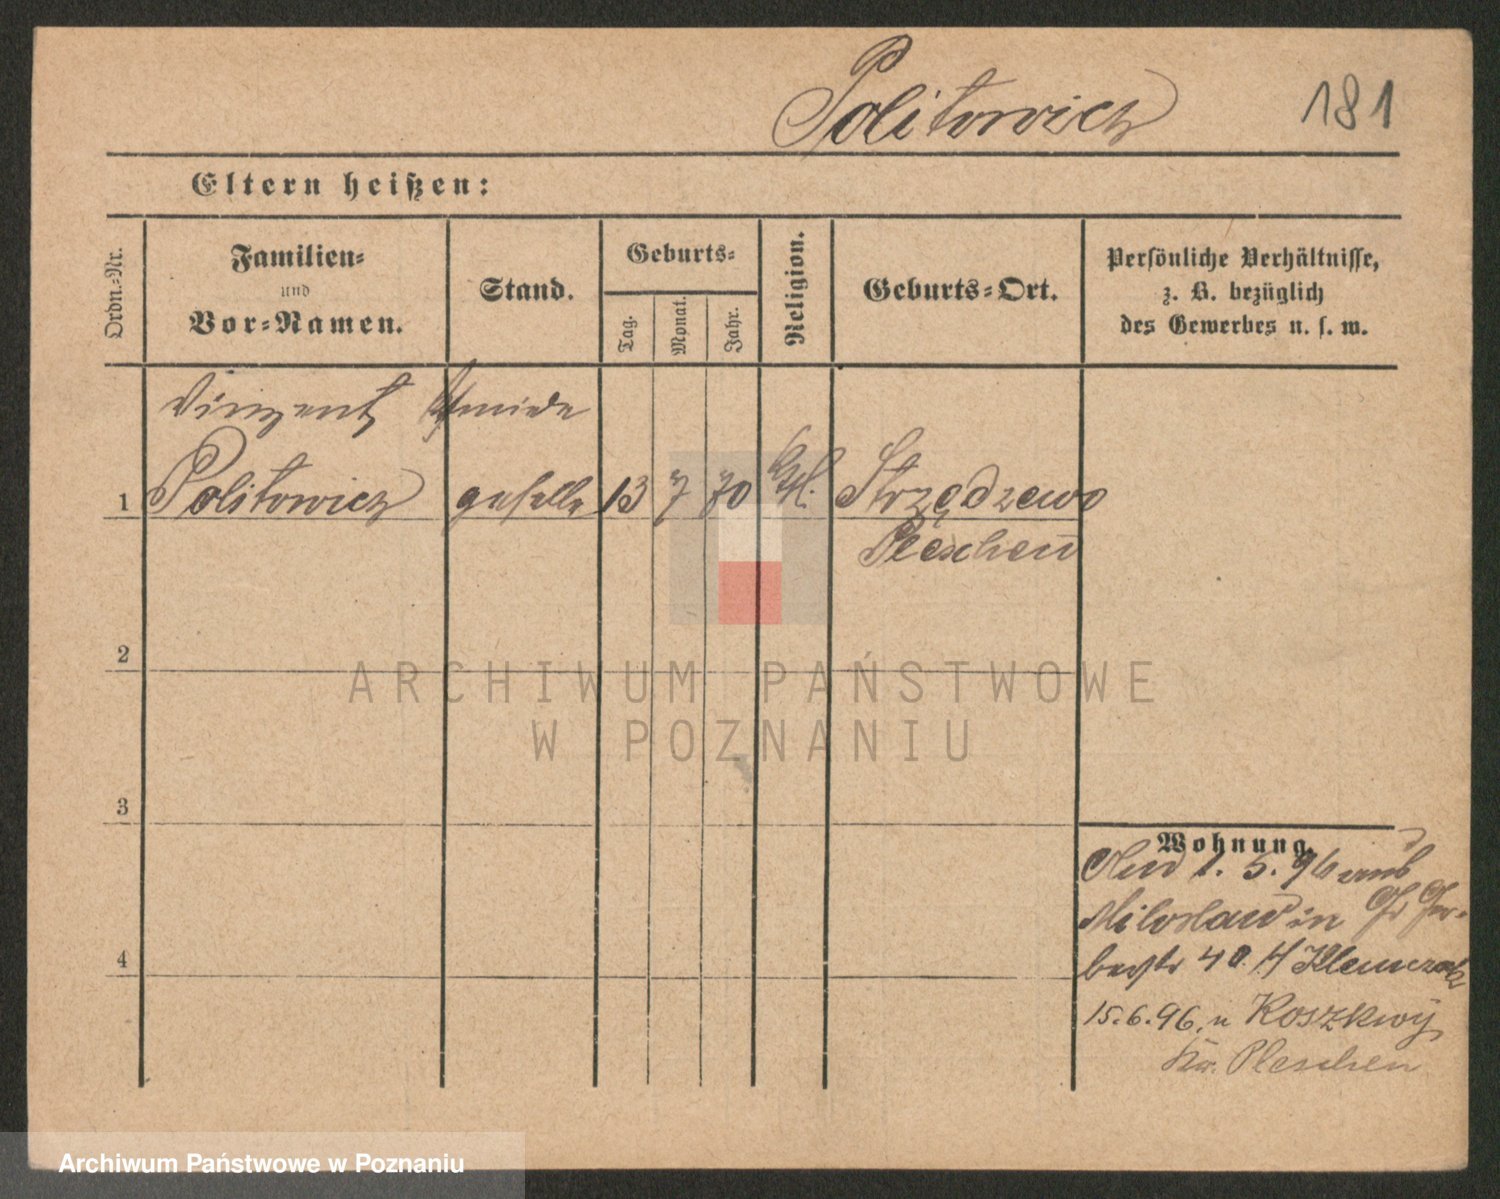 Politowicz 181
Eltern heißen:
Ordn.-Nr.
Familien-
und
Vor-Namen.
Stand.
Geburts-
Tag.
Monat.
Jahr.
Religion.
Geburts-Ort.
Persönliche Verhältnisse,
z. B. bezüglich
des Gewerbes u. s. w.
Vinzent Schmiede
1 Politowicz geselle 13 7 70 Kth. Strzędzewo
Pleschen
2
3
4
Wohnung.
1. 5. 96 aus
Miloslaw in Gr Ger-
berstr 40. H Klemczak
15.6.96, n Koszkwÿ
Kr. Pleschen
ARCHIWUM PAŃSTWOWE
W POZNANIU
Archiwum Państwowe w Poznaniu